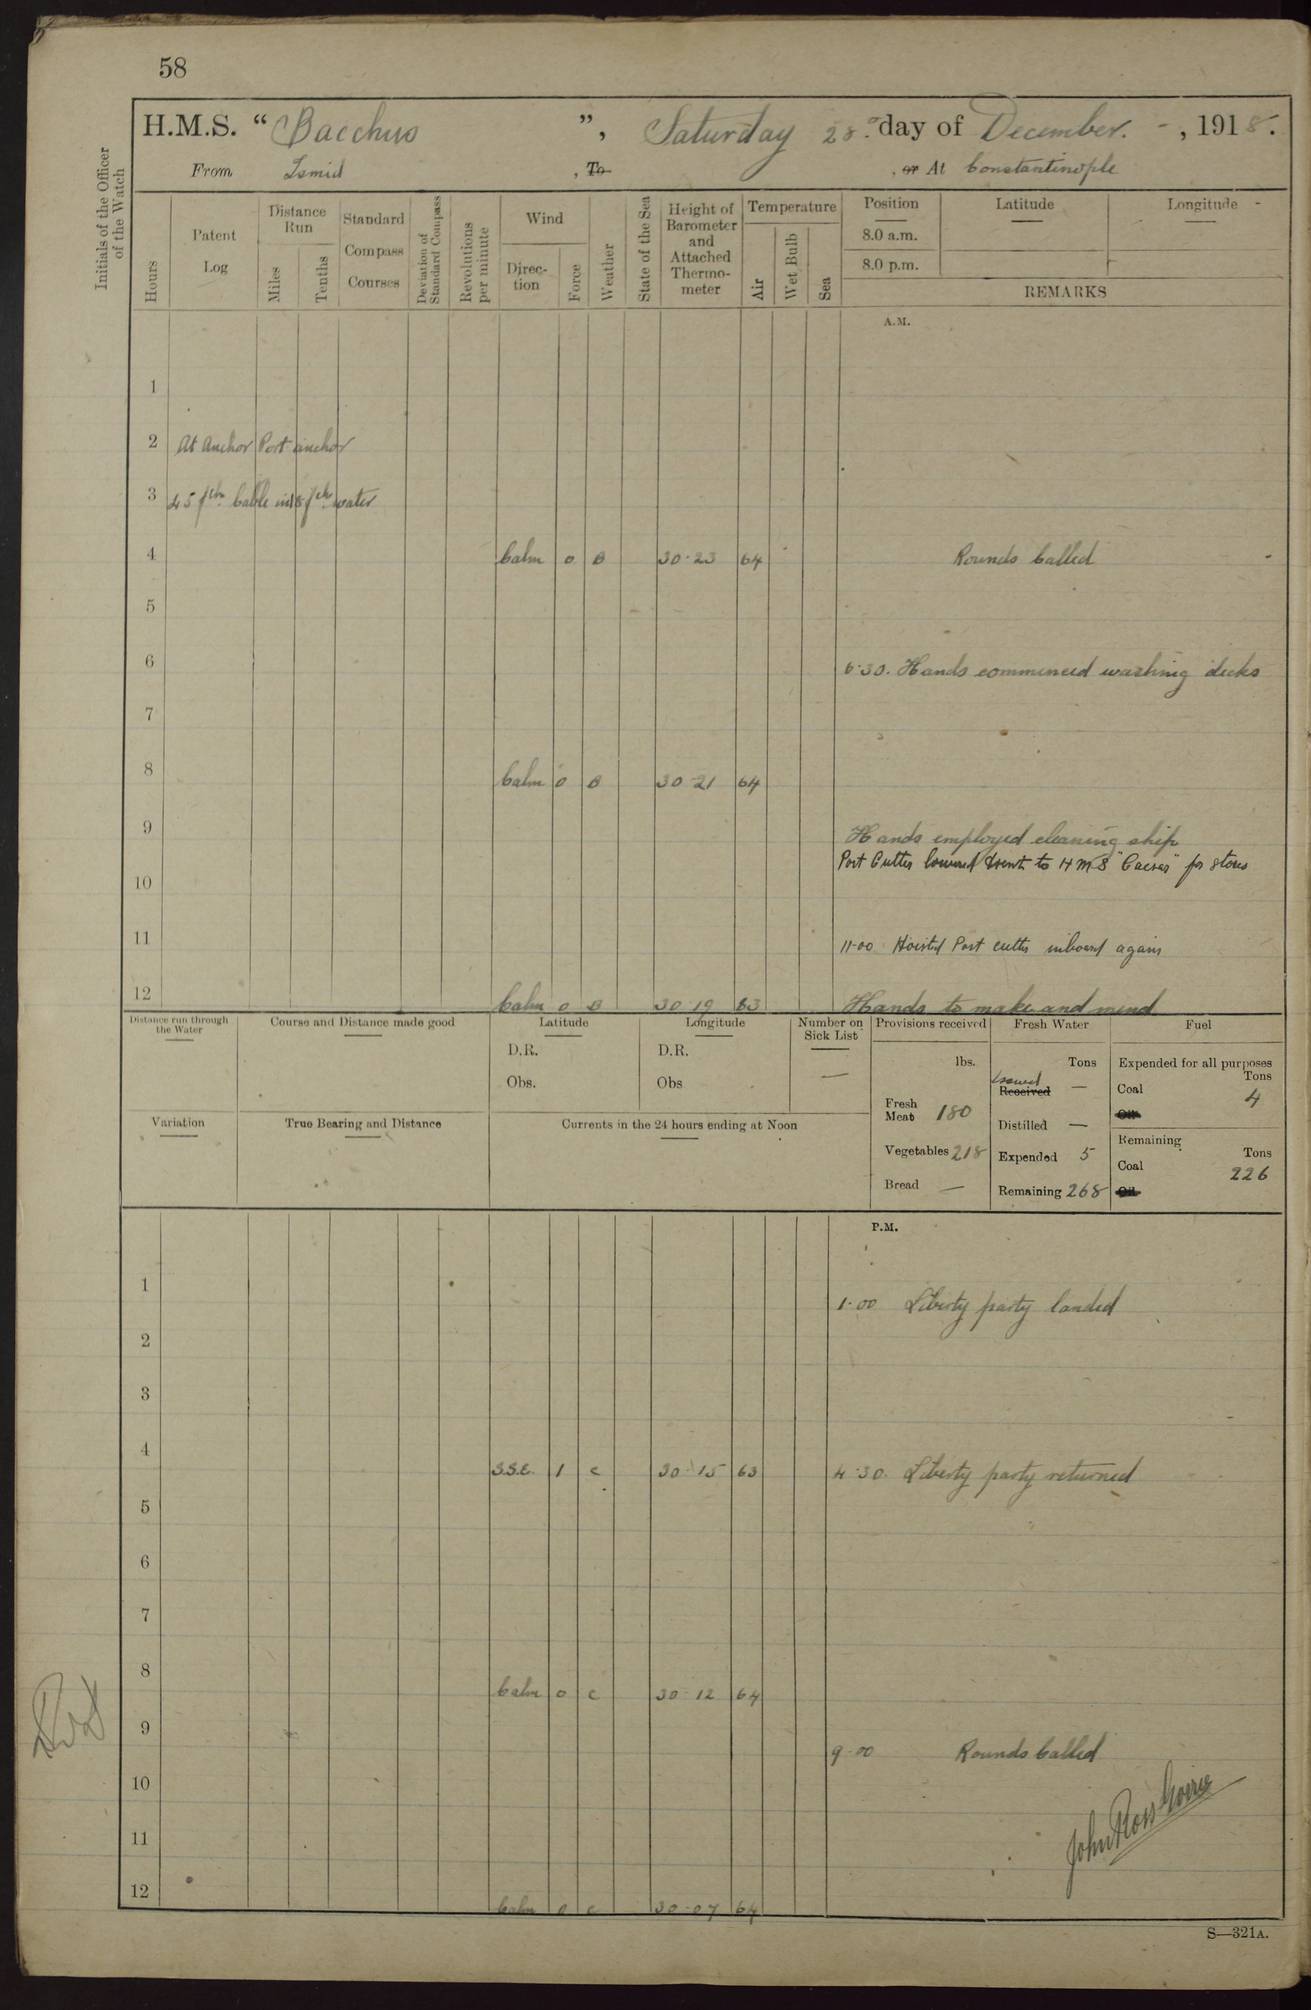 58
H.M.S. “ Bacchus ”, Saturday 28th day of December. - , 1918.
From Ismid , To , or At Constantinople
Initials of the Officer of the Watch
Hours
Patent Log
Distance Run
Miles
Tenths
Standard Compass Courses
Deviation of Standard Compass
Revolutions per minute
Wind
Direc-tion
Force
Weather
State of the Sea
Height of Barometer and Attached Thermo-meter
Temperature
Air
Wet Bulb
Sea
Position
8.0 a.m.
8.0 p.m.
Latitude
Longitude
REMARKS
A.M.
1
2 At Anchor Port anchor
3 45 fthm Cable in 18 fthm water
4 Calm 0 B 30·23 64 Rounds Called
5
6 6·30. Hands commenced washing decks
7
8 Calm 0 B 30·21 64
9 Hands employed cleaning ship
Port Cutter lowered & sent to H M S "Caesar" for stores
10
11 11·00 Hoisted Port cutter inboard again
12 Calm 0 B 30·19 63 Hands to make and mend
Distance run through the Water
Course and Distance made good
Latitude
D.R.
Obs.
Longitude
D.R.
Obs
Number on Sick List
—
Variation
True Bearing and Distance
Currents in the 24 hours ending at Noon
Provisions received
lbs.
Fresh Meat 180
Vegetables 218
Bread —
Fresh Water
Tons
Issued
Received —
Distilled —
Expended 5
Remaining 268
Fuel
Expended for all purposes
Tons
Coal 4
Oil
Remaining
Tons
Coal 226
Oil
P.M.
1 1·00 Liberty party landed
2
3
4 S.S.E. 1 c 30·15 63 4·30. Liberty party returned
5
6
7
8 Calm 0 c 30·12 64
9 9·00 Rounds Called
10
11
John Ross
12 Calm 0 c 30·07 64
S—321A.